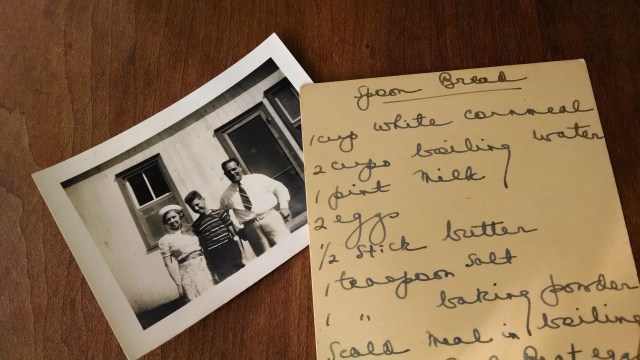 Spoon Bread
1 cup white cornmeal
2 cups boiling water
1 pint milk
2 eggs
1/2 stick butter
1 teaspoon salt
1 " baking powder
Scald meal in boiling
eggs